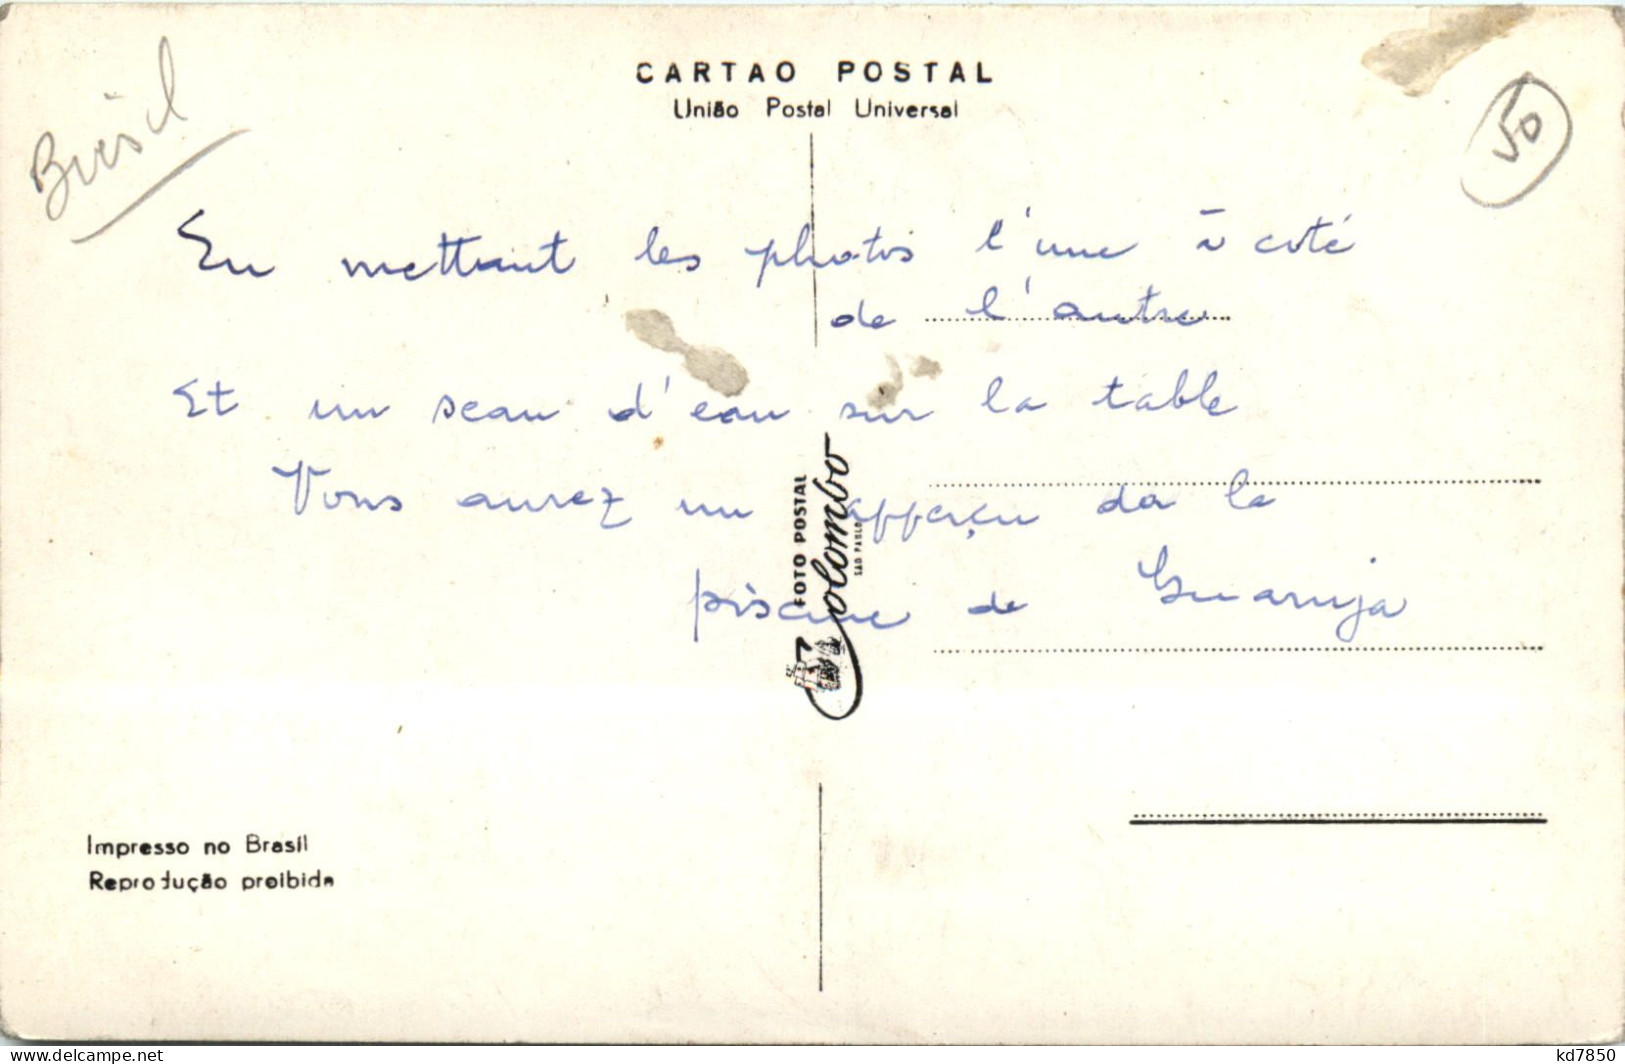 CARTAO POSTAL
União Postal Universal
Brésil
50
En mettant les photos l'une à coté
de l'autre
Et un seau d'eau sur la table
Vous aurez un apperçu da la
piscine de Guaruja
FOTO POSTAL
Colombo
SÃO PAULO
Impresso no Brasil
Reprodução proibida
www.delcampe.net
kd7850